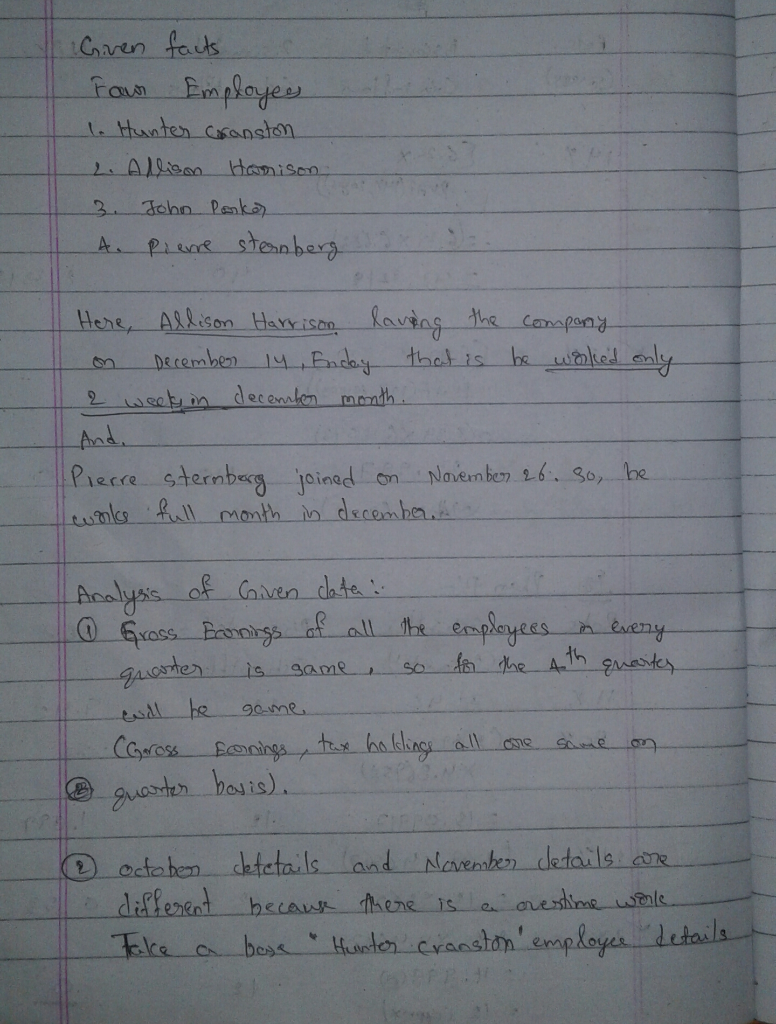 Given facts
Four Employees
1. Hunter Cranston
2. Allison Harrison
3. John Parker
4. Pierre sternberg
Here, Allison Harrison leaving the company
on December 14, Friday that is he worked only
2 week in december month.
And.
Pierre sternberg joined on November 26. So, he
works full month in december.
Analysis of Given data :-
① Gross Earnings of all the employees in every
quarter is same, so for the 4th quarter
will be same.
(Gross Earnings, tax holdings all are same on
quarter basis).
② october detetails and November details are
different because there is a overtime work
Take a base "Hunter cranston" employee details